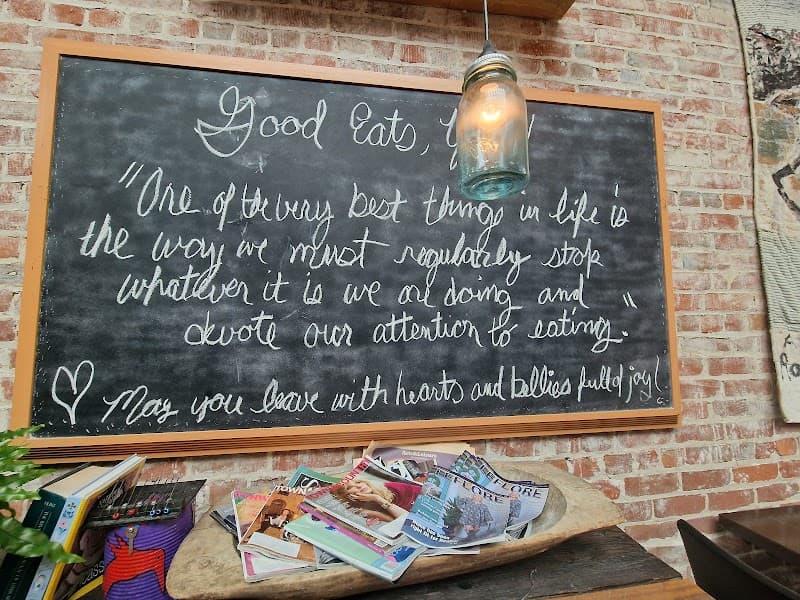 Good Eats,
"One of the very best things in life is
the way we must regularly stop
whatever it is we are doing and
devote our attention to eating."
♡ May you leave with hearts and bellies full of joy!
TOWN
FLORE
FLORE